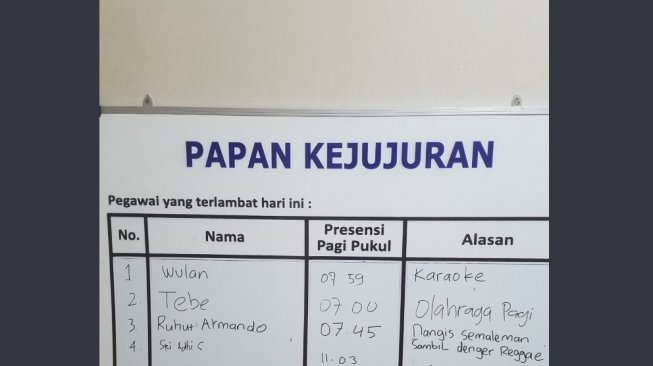 PAPAN KEJUJURAN
Pegawai yang terlambat hari ini :
No. Nama Presensi Pagi Pukul Alasan
1 Wulan 07.59 Karaoke
2. Tebe 07.00 Olahraga Pagi
3. Ruhut Armando 07.45 Nangis semaleman
sambil denger Reggae
4. C 11.03